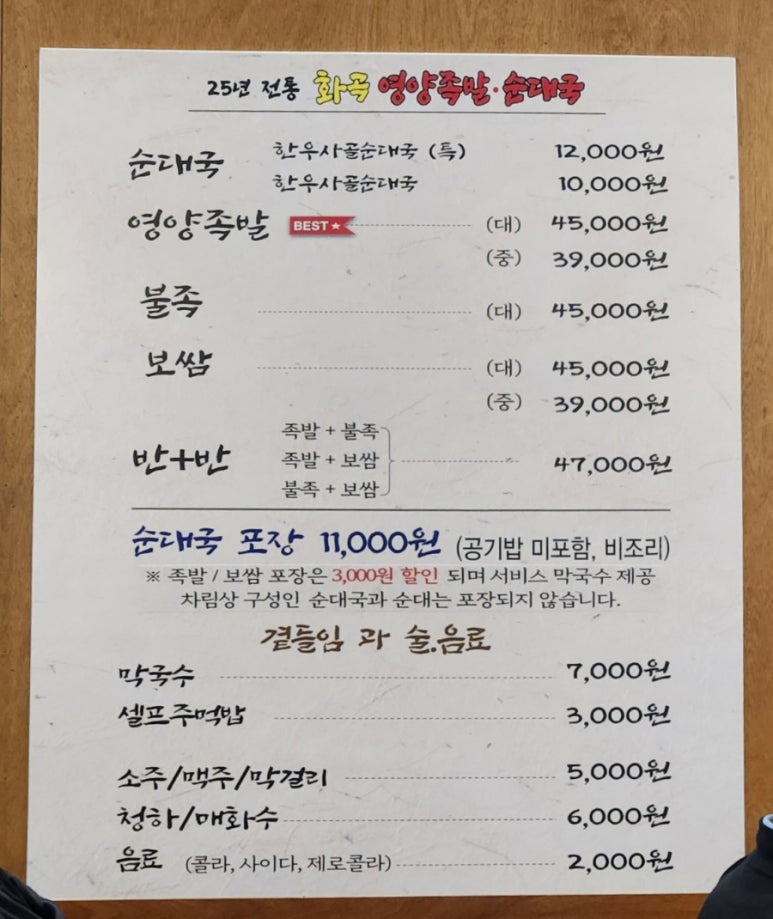 25년 전통 화곡 영양족발·순대국
순대국 한우사골순대국 (특) 12,000원
한우사골순대국 10,000원
영양족발 BEST★ (대) 45,000원
(중) 39,000원
불족 (대) 45,000원
보쌈 (대) 45,000원
(중) 39,000원
족발 + 불족
반+반 족발 + 보쌈 47,000원
불족 + 보쌈
순대국 포장 11,000원 (공기밥 미포함, 비조리)
※ 족발 / 보쌈 포장은 3,000원 할인 되며 서비스 막국수 제공
차림상 구성인 순대국과 순대는 포장되지 않습니다.
곁들임 과 술.음료
막국수 7,000원
셀프주먹밥 3,000원
소주/맥주/막걸리 5,000원
청하/매화수 6,000원
음료 (콜라, 사이다, 제로콜라) 2,000원